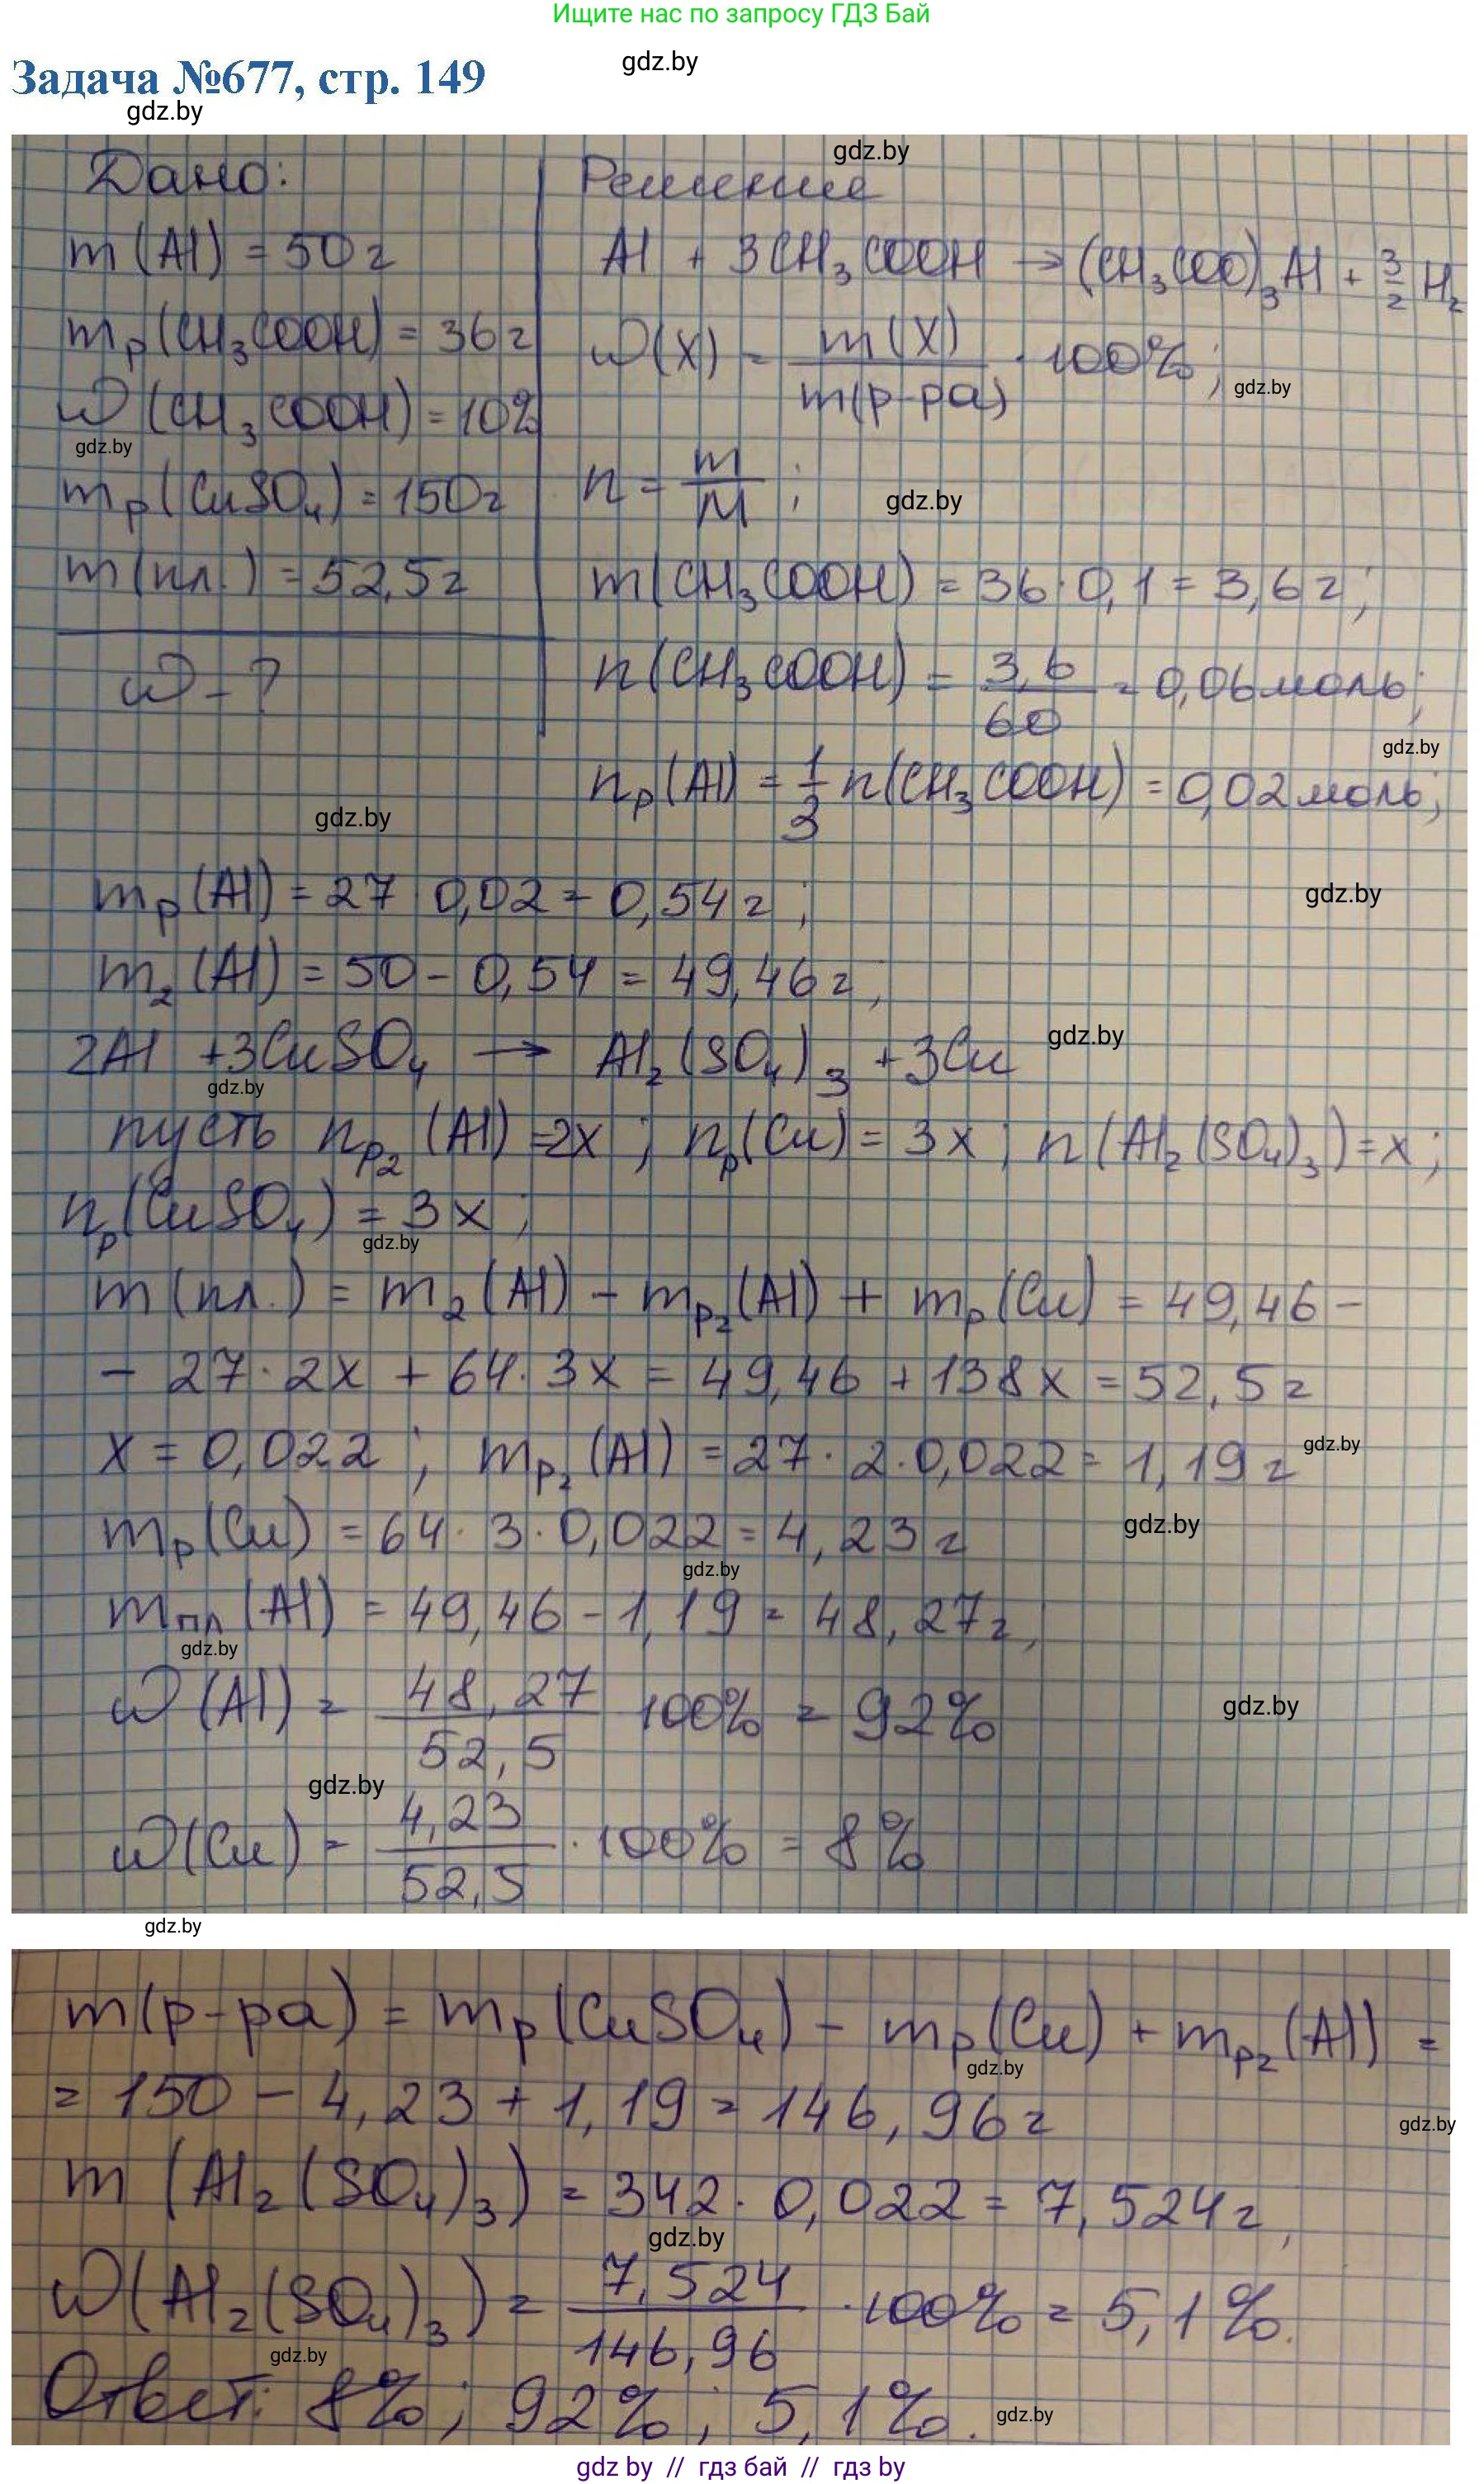 Ищите нас по запросу ГДЗ Бай
gdz.by
Задача №677, стр. 149
gdz.by
gdz.by
Дано:
m(Al) = 50г
mр(CH₃COOH) = 36г
ω(CH₃COOH) = 10%
gdz.by
mр(CuSO₄) = 150г
m(пл.) = 52,5г
ω - ?
Решение
Al + 3CH₃COOH → (CH₃COO)₃Al + 3/2 H₂
ω(X) = m(X)/m(р-ра) · 100%;
gdz.by
n = m/M;
gdz.by
m(CH₃COOH) = 36·0,1 = 3,6г;
n(CH₃COOH) = 3,6/60 = 0,06моль;
gdz.by
nр(Al) = 1/3 n(CH₃COOH) = 0,02моль;
gdz.by
mр(Al) = 27·0,02 = 0,54г;
gdz.by
m₂(Al) = 50 - 0,54 = 49,46г;
2Al + 3CuSO₄ → Al₂(SO₄)₃ + 3Cu
gdz.by
gdz.by
пусть nр₂(Al) = 2x; nр(Cu) = 3x; n(Al₂(SO₄)₃) = x;
nр(CuSO₄) = 3x;
gdz.by
m(пл.) = m₂(Al) - mр₂(Al) + mр(Cu) = 49,46 -
- 27·2x + 64·3x = 49,46 + 138x = 52,5г
x = 0,022; mр₂(Al) = 27·2·0,022 = 1,19г
gdz.by
mр(Cu) = 64·3·0,022 = 4,23г
gdz.by
gdz.by
mпл(Al) = 49,46 - 1,19 = 48,27г;
gdz.by
ω(Al) = 48,27/52,5 100% = 92%
gdz.by
gdz.by
ω(Cu) = 4,23/52,5 · 100% = 8%
gdz.by
m(р-ра) = mр(CuSO₄) - mр(Cu) + mр₂(Al) =
gdz.by
= 150 - 4,23 + 1,19 = 146,96г
gdz.by
m(Al₂(SO₄)₃) = 342·0,022 = 7,524г,
gdz.by
ω(Al₂(SO₄)₃) = 7,524/146,96 · 100% = 5,1%.
gdz.by
Ответ: 8%; 92%; 5,1%.
gdz.by
gdz by // гдз бай // гдз by